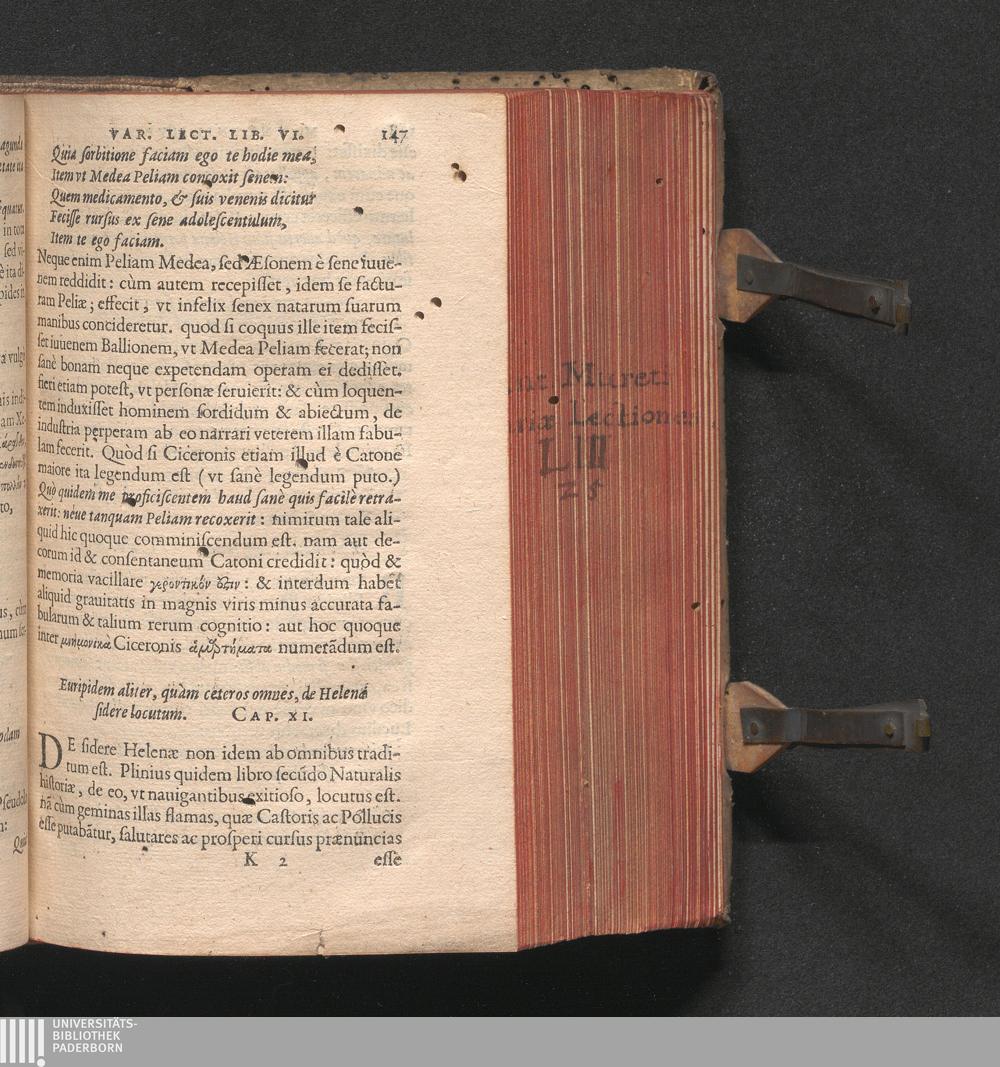 VAR. LECT. LIB. VI. 147
Quia ſorbitione faciam ego te hodie mea,
Item vt Medea Peliam concoxit ſenem:
Quem medicamento, & ſuis venenis dicitur
Feciſſe rurſus ex ſene adoleſcentulum,
Item te ego faciam.
Neque enim Peliam Medea, ſed Æſonem è ſene iuue-
nem reddidit: cùm autem recepiſſet, idem ſe factu-
ram Peliæ; effecit, vt infelix ſenex natarum ſuarum
manibus concideretur. quod ſi coquus ille item feciſ-
ſet iuuenem Ballionem, vt Medea Peliam fecerat; non
ſanè bonam neque expetendam operam ei dediſſet.
fieri etiam poteſt, vt perſonæ ſeruierit: & cùm loquen-
tem induxiſſet hominem ſordidum & abiectum, de
induſtria perperam ab eo narrari veterem illam fabu-
lam fecerit. Quòd ſi Ciceronis etiam illud è Catone
maiore ita legendum eſt (vt ſanè legendum puto.)
Quò quidem me proficiſcentem haud ſanè quis facilè retra-
xerit: néue tanquam Peliam recoxerit: nimirum tale ali-
quid hic quoque comminiſcendum eſt. nam aut de-
corum id & conſentaneum Catoni credidit: quòd &
memoria vacillare γεροντικόν ἐϛιν: & interdum habet
aliquid grauitatis in magnis viris minus accurata fa-
bularum & talium rerum cognitio: aut hoc quoque
inter μνημονικὰ Ciceronis ἁμαρτήματα numerādum eſt.
Euripidem aliter, quàm ceteros omnes, de Helenæ
ſidere locutum. CAP. XI.
DE ſidere Helenæ non idem ab omnibus tradi-
tum eſt. Plinius quidem libro ſecūdo Naturalis
hiſtoriæ, de eo, vt nauigantibus exitioſo, locutus eſt.
nā cùm geminas illas flāmas, quæ Caſtoris ac Pollucis
eſſe putabātur, ſalutares ac proſperi curſus prænūncias
K 2 eſſe
Muret:
Lectiones
LIII
25
UNIVERSITÄTS-
BIBLIOTHEK
PADERBORN